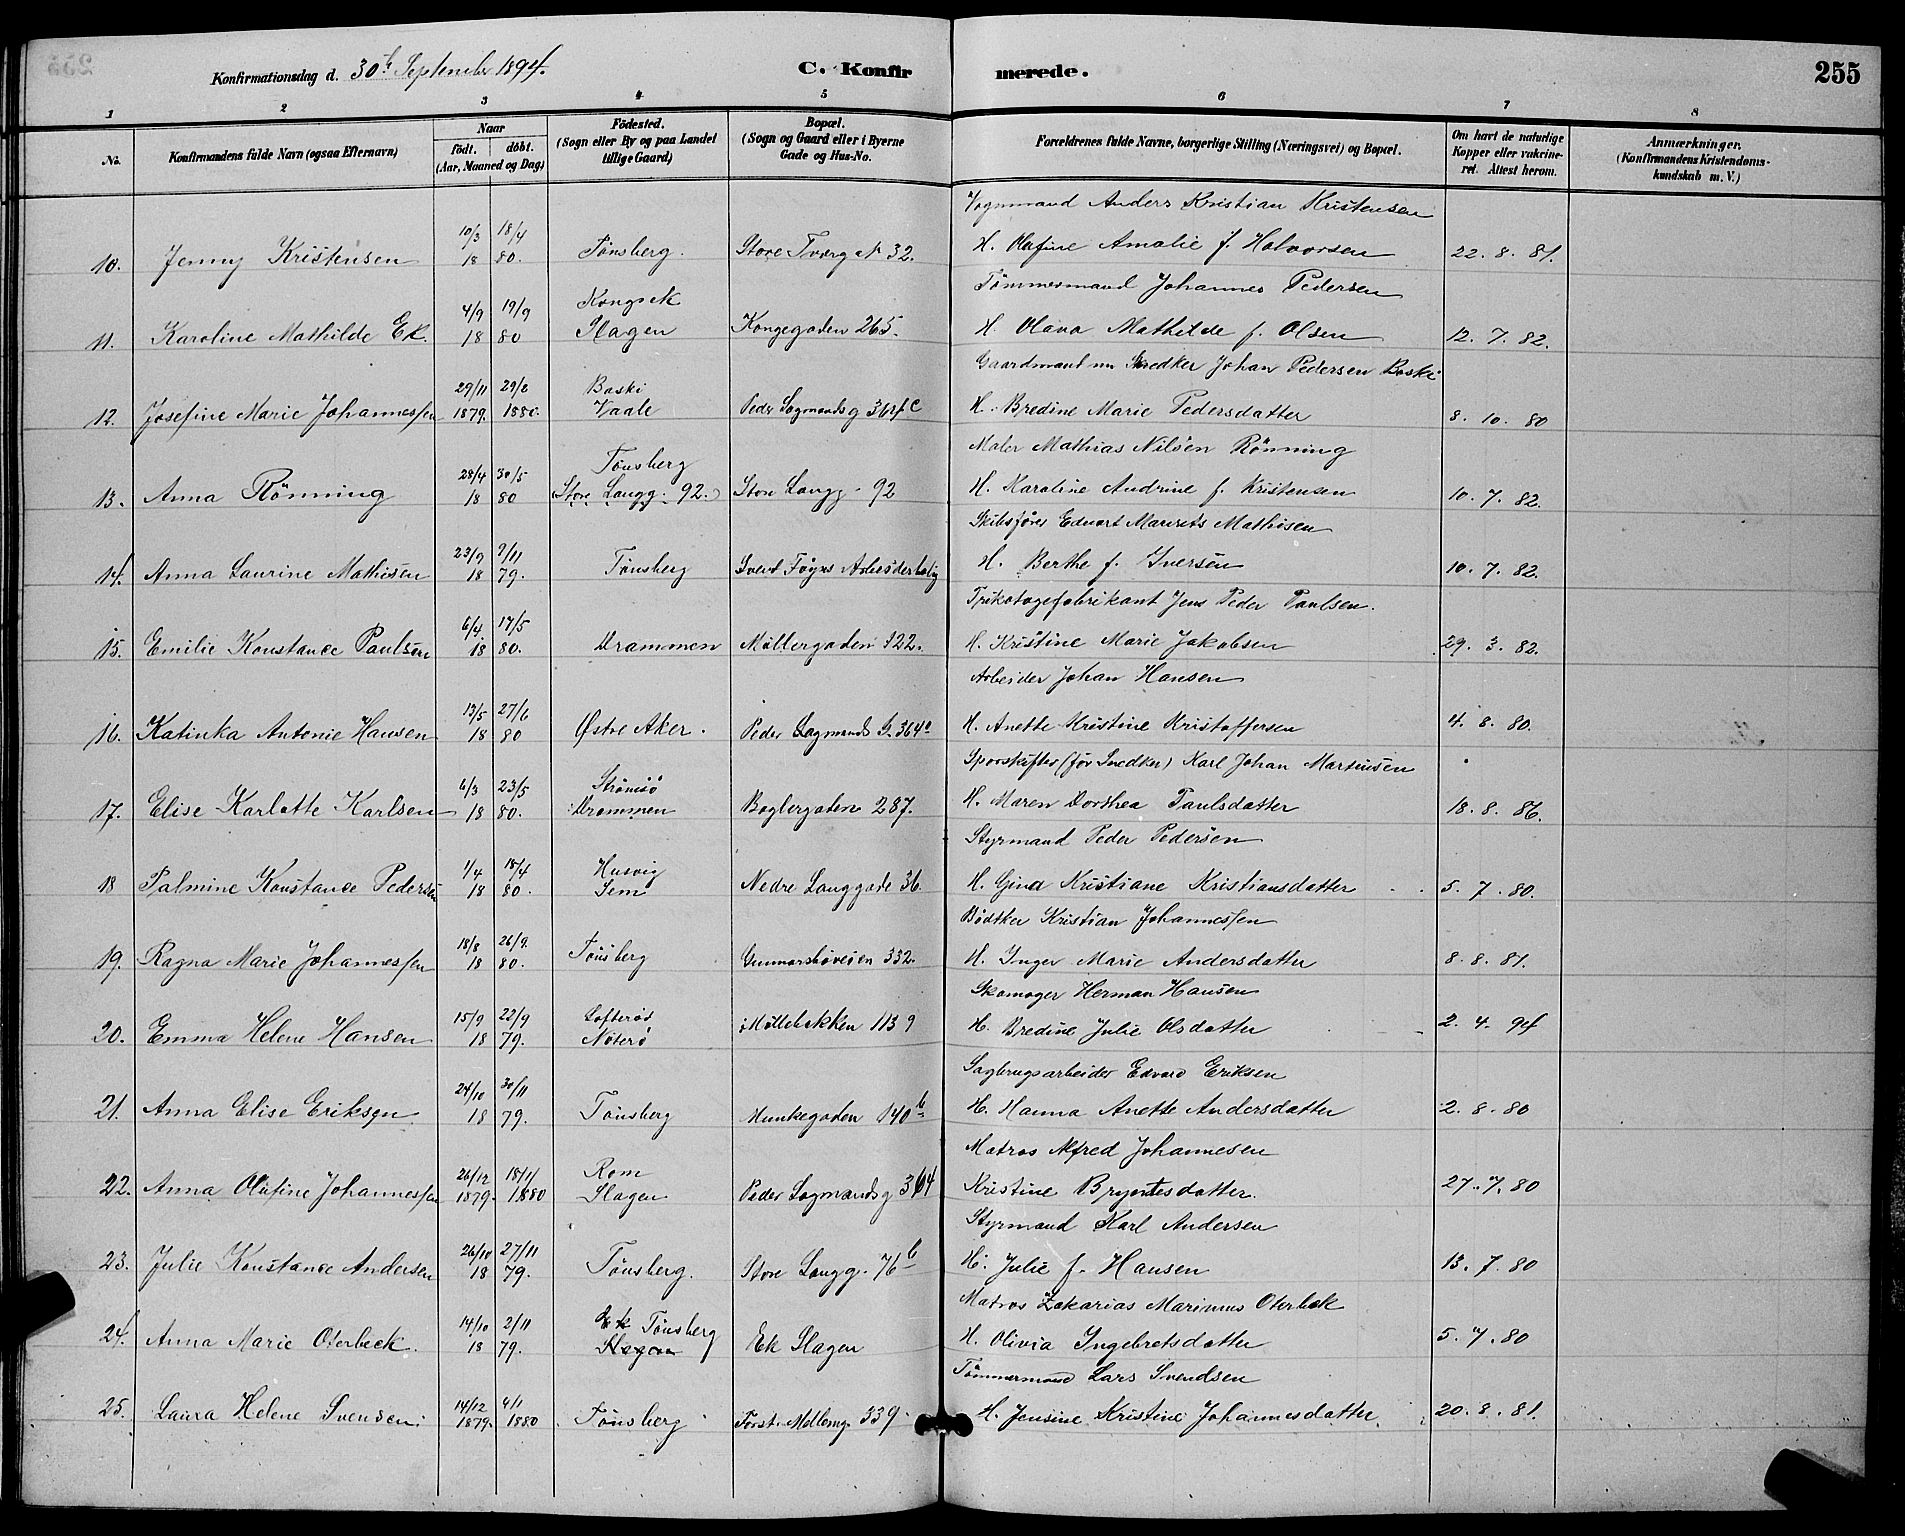 255
Konfirmationsdag d. 30te September 1894.
C. Konfirmerede.
1 2 3 4 5 6 7 8
No. Konfirmandens fulde Navn (ogsaa Efternavn) Naar födt. döbt. (Aar, Maaned og Dag) Födested. (Sogn eller By og paa Landet tillige Gaard) Bopæl. (Sogn og Gaard eller i Byerne Gade og Hus-No. Forældrenes fulde Navne, borgerlige Stilling (Næringsvei) og Bopæl. Om havt de naturlige Kopper eller vakcineret. Attest herom. Anmærkninger. (Konfirmandens Kristendomskundskab m. V.)
Vognmand Anders Kristian Kristensen
10. Jenny Kristensen 10/3 18/4 18 80. Tønsberg. Store Tverg 32. H. Olafine Amalie f. Halvorsen 22. 8. 81.
Tømmermand Johannes Pedersen
11. Karoline Mathilde Ek. 4/9 19/9 18 80 Kongsek Slagen Kongegaden 265. H. Olava Mathilde f. Olsen 12. 7. 82.
Gaardmand nu Snedker Johan Pedersen Baski
12. Josefine Marie Johannessen 29/11 29/2 1879. 1880. Baski Vaale Peder Lagmandsg 364 c H. Bredine Marie Pedersdatter 8. 10. 80
Maler Mathias Nilsen Rönning
13. Anna Rönning 28/4 30/5 18 80 Tønsberg Store Langg. 92. Store Langg. 92 H. Karoline Andrine f. Kristensen 10. 7. 82.
Skibsfører Edvart Maurits Mathisen
14. Anna Laurine Mathisen 23/9 9/11 18 79. Tønsberg Svend Føyns Arbeiderbolig H. Berthe f. Iversen 10. 7. 82.
Trikotagefabrikant Jens Peder Paulsen.
15. Emilie Konstance Paulsen 6/4. 17/5 18 80. Drammen Møllergaden 122. H. Kristine Marie Jakobsen 29. 3. 82.
Arbeider Johan Hansen
16. Katinka Antonie Hansen 13/5 27/6 18 80 Østre Aker. Peder Lagmands G. 364a H. Anette Kristine Kristoffersen 4. 8. 80.
Sporskifter (før Snedker) Karl Johan Martinsen
17. Elise Karlotte Karlsen 6/3 23/5 18 80. Strømsø Drammen Baglergaden 287. H. Maren Dorthea Paulsdatter 18. 8. 86.
Styrmand Peder Pedersen
18 Palmine Konstance Pedersen 1/4 18/4 18 80. Husvig Sem Nedre Langgade 36. H. Gina Kristiane Kristiansdatter 5. 7. 80.
Bødker Kristian Johannessen
19. Ragna Marie Johannessen 18/8 26/9. 18 80. Tønsberg Gunnarsbøveien 332. H. Inger Marie Andersdatter 8. 8. 81.
Skomager Herman Hansen
20. Emma Helene Hansen 15/9 22/9 18 79. Lofterød Nøterø Møllebakken 113 9 H. Bredine Julie Olsdatter 2. 4. 94
Sagbrugsarbeider Edvard Eriksen
21. Anna Elise Eriksen 24/10 30/11 18 79. Tønsberg Munkegaden 140 b H. Hanna Anette Andersdatter 2. 8. 80
Matros Alfred Johannesen
22. Anna Olufine Johannessen 26/12 18/1 1879. 1880 Rom Slagen Peder Lagmandsg 364 Kristine Bryntesdatter. 27. 7. 80
Styrmand Karl Andersen
23. Julie Konstance Andersen 26/10 27/11 18 79. Tønsberg. Store Langg. 76 b H. Julie f. Hansen 13. 7. 80
Matros Zakarias Marinus Oterbek
24. Anna Marie Oterbeck. 14/10 2/11 18 79. Ek Tønsberg Slagen Ek Slagen H. Olivia Ingebretsdatter 5. 7. 80
Tömmermand Lars Svendsen
25. Laura Helene Svensen. 14/12 4/1 1879. 1880 Tønsberg Forst. Mølleng. 339. H. Jensine Kristine Johannesdatter 20. 8. 81.